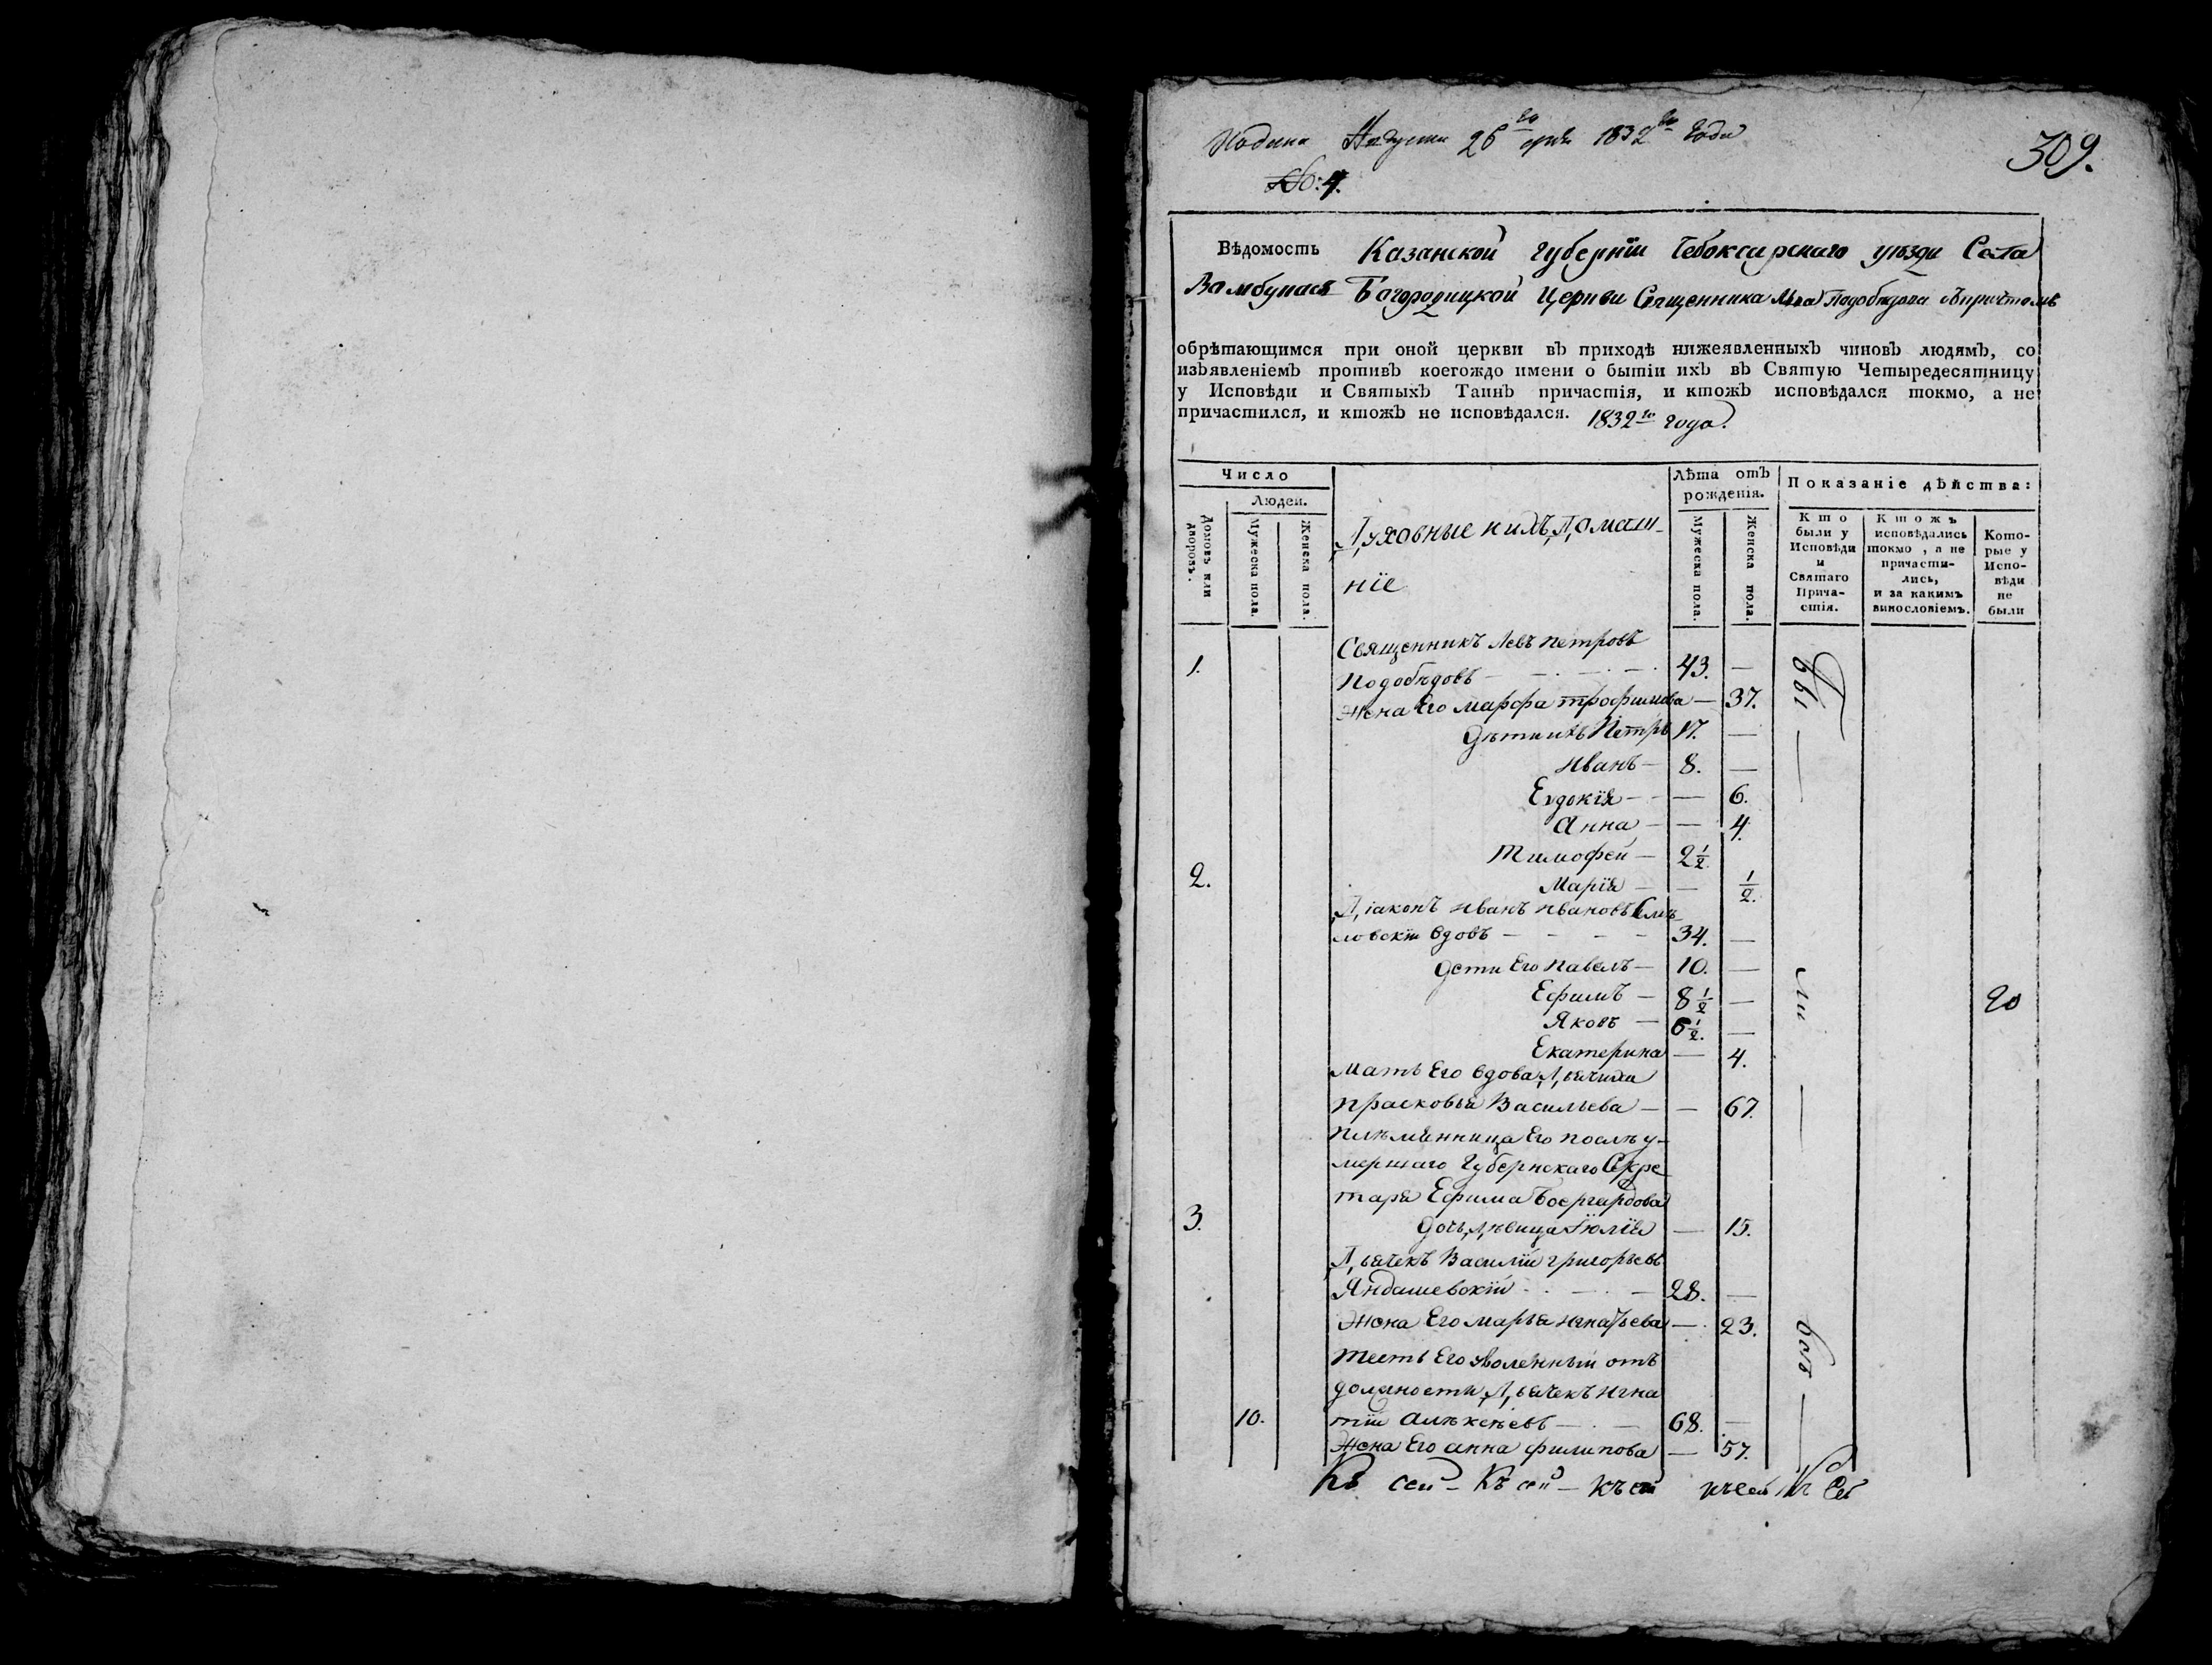 Подана Августа 26го дня 1832го года
309.
№: 4.
Вѣдомость Казанской губернїи Чебоксарскаго уѣзда Села
Богородицкой Церкви Священника Льва Подобѣдова съ причтомъ
обрѣтающимся при оной церкви въ приходѣ нижеявленныхъ чиновъ людямъ, со
изъявленіемъ противъ коегождо имени о бытіи ихъ въ Святую Четыредесятницу
у Исповѣди и Святыхъ Таинъ причастія, и ктожъ исповѣдался токмо, а не
причастился, и ктожъ не исповѣдался. 1832го года.
Число
Людей.
Домовъ или дворовъ.
Мужеска пола.
Женска пола.
Духовные и ихъ домаш-
нїе
Лѣта отъ рожденія.
Мужеска пола.
Женска пола.
Показаніе дѣйства:
Кто были у Исповѣди и Святаго Прича-стія.
Ктожъ исповѣдались токмо, а не причасти-лись, и за какимъ винословіемъ.
Кото-рые у Испо-вѣди не были
1. Священникъ Левъ Петровъ
Подобѣдовъ — 43. —
Жена Его Марфа Трофимова — 37.
Дѣти ихъ Петръ 17. —
Иванъ — 8. —
Евдокїя — — 6.
Анна — — 4.
Тимофей — 2 1/2
2. Марїя — — 1/2.
Дїаконъ Иванъ Ивановъ
вдовъ — 34. —
Дети Его Павелъ — 10. —
Ефимъ — 8 1/2 —
Яковъ — 6 1/2. —
Екатерина — 4.
Мать Его вдова Дьячиха
Прасковья Васильева — — 67.
Племянница Его послѣ у-
мершаго Губернскаго Секре-
таря Ефима
3. дочь дѣвица Їюлїя — 15.
Дьячекъ Василїй Григорьевъ
Яндашевскїй — 28. —
Жена Его Марья Игнатьева — 23.
Тесть Его уволенный отъ
должности Дьячекъ Игна
10. тїй Алѣксѣевъ — 68. —
Жена Его Анна Филипова — 57.
Бы — ли — 20
вси —
Къ сей — Къ сей — Къ сей Къ сей Къ Сей